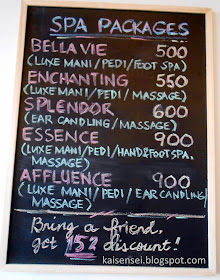 SPA PACKAGES
BELLA VIE 500
(LUXE MANI/PEDI/FOOT SPA)
ENCHANTING 550
(LUXE MANI/PEDI/MASSAGE)
SPLENDOR 600
(EAR CANDLING/MASSAGE)
ESSENCE 900
(LUXE MANI/PEDI/HAND&FOOT SPA,
MASSAGE)
AFFLUENCE 900
(LUXE MANI/PEDI/EAR CANDLING/
MASSAGE)
Bring a friend,
get 15% discount!
kaisensei.blogspot.com